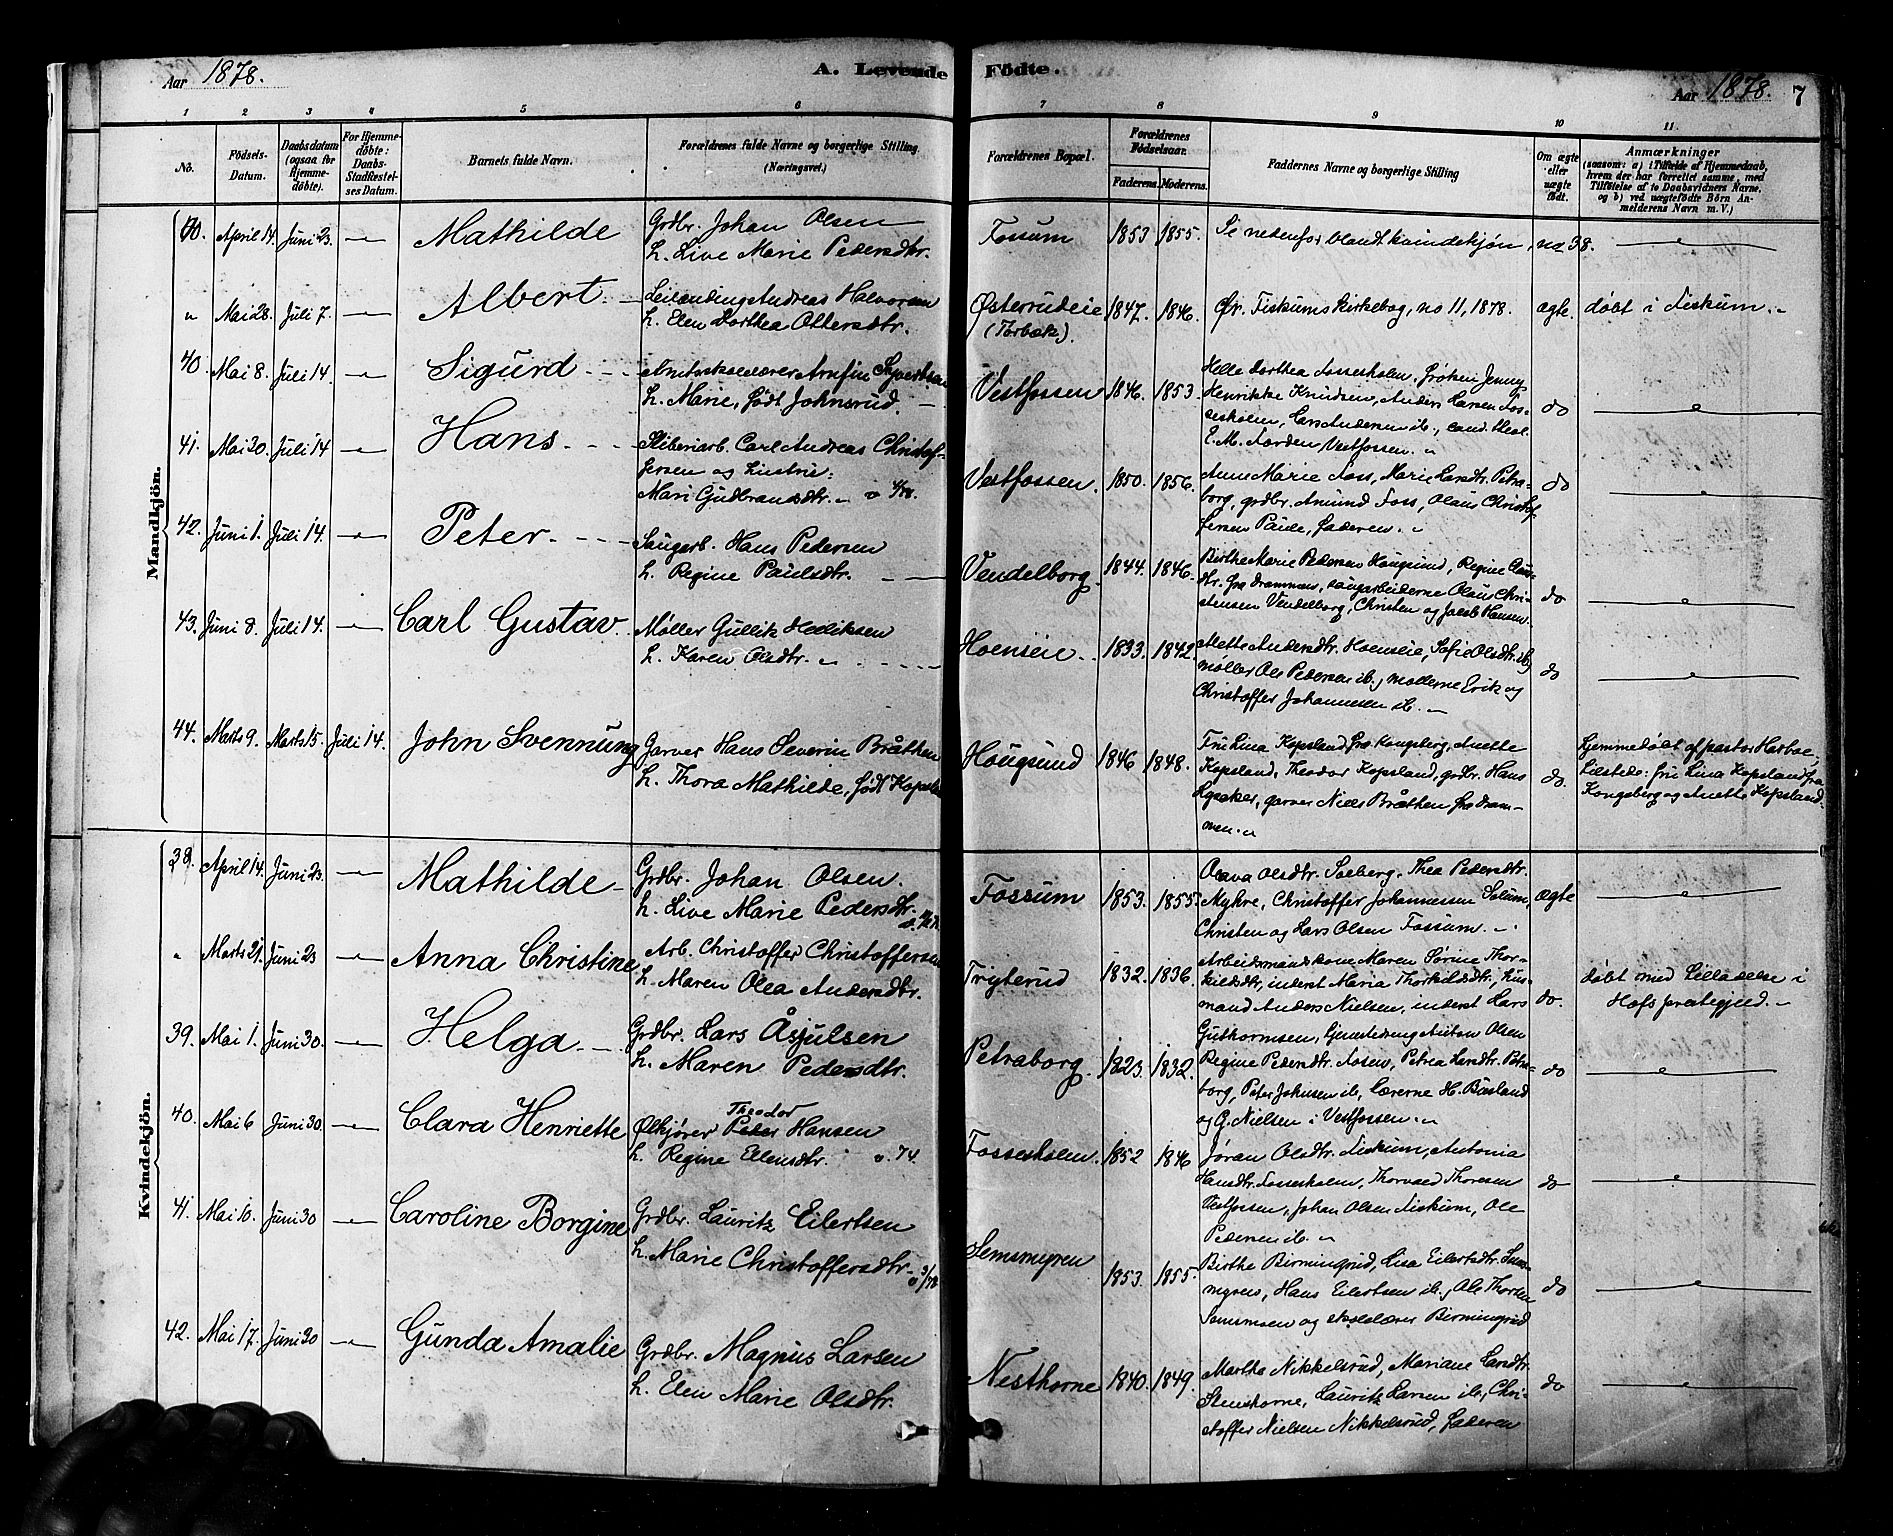 Aar 1878.
A. Levende Födte.
Aar 1878. 7
1 2 3 4 5 6 7 8 9 10 11.
No.
Födsels-
Datum.
Daabsdatum
(ogsaa for
Hjemme-
döbte).
For Hjemme-
döbte:
Daabs-
Stadfæstel-
ses Datum.
Barnets fulde Navn.
Forældrenes fulde Navne og borgerlige Stilling.
(Næringsvei.)
Forældrenes Bopæl.
Forældrenes
Födselsaar.
Faderens. Moderens.
Faddernes Navne og borgerlige Stilling
Om ægte
eller
uægte
födt.
Anmærkninger
(saasom: a) i Tilfælde af Hjemmedaab,
hvem der har forrettet samme, med
Tilföielse af to Daabsvidners Navne,
og b) ved uægtefödte Börn An-
melderens Navn m. V.)
Mandkjön.
April 14. Juni 23. Mathilde
Grdbr. Johan Olsen
h. Live Marie Pedersdtr.
Fossum 1853 1855. Se nedenfor blandt kvindekjøn, no 38.
" Mai 28. Juli 7. Albert.
Leilænding Andreas Halvorsen
h. Elen Dorthea Ottersdtr.
Østerudeie
(Torbæk).
1847. 1846. Ør. Fiskums kirkebog, no 11, 1878. ægte. døbt i Fiskum.
40. Mai 8. Juli 14. Sigurd
Arnfin Syvertsen
h. Marie, født Johnsrud.
Vestfossen 1846. 1853.
Helle Dorthea Fossesholm, frøken Jenny
Henrikke Knudsen, Anders Larsen Fos-
sesholm, Lars Andersen ib., cand. theol.
E. M. Vestfossen.
do
41. Mai 30. Juli 14 Hans
Sliberiarb. Carl Andreas Christof-
fersen og hustru:
Mari Gudbrandsdtr.
Vestfossen. 1850. 1856.
Anne Marie Foss, Marie Larsdtr. Petra-
borg, grdbr. Amund Foss, Olaus Christof-
fersen Paule, faderen.
do
42. Juni 1. Juli 14. Peter
Saugarb. Hans Pedersen
h. Regine Paulsdtr.
Vendelborg. 1844. 1846.
Birthe Marie Pedersen Hougsund, Regine
dtr. fra Drammen, saugarbeiderne Olaus Chri-
stensen Vendelborg, Christen og Jacob Hansen.
do
43. Juni 8. Juli 14. Carl Gustav.
Møller Gullik Hendriksen
h. Karen Olsdtr.
Hoenseie 1833. 1842.
Mette Andersdtr. Hoenseie, Sofie Olsdtr. ib.,
møller Ole Pedersen ib., møllerne Erik og
Christoffer Johannesen ib.
do
44. Marts 9. Marts 15. Juli 14. John Svennung
Garver Hans Severin Bråthen
h. Thora Mathilde, født Kopsland
Hougsund 1846 1848.
Fru Lina Kopsland fra Kongsberg, Anette
Kopsland, Theodor Kopsland, grdbr. Hans
Lysaker, garver Niels Bråthen fra Dram-
men.
do
hjemmedøbt af pastor Harboe,
tilstede: fru Lina Kopsland fra
Kongsberg og Anette Kopsland.
Kvindekjön.
38. April 14. Juni 23. Mathilde
Grdbr. Johan Olsen.
h. Live Marie Pedersdtr.
Fossum 1853. 1855.
Olava Olsdtr. Solberg. Thea Pedersdtr.
Myhre, Christoffer Johannessen Solum,
Christen og Lars Olsen Fossum.
ægte
" Marts 21. Juni 23 Anna Christine
Arb. Christoffer Christoffersen
h. Maren Olea Andersdtr.
Trygterud 1832. 1836.
Arbeidsmandskone Maren Sørine Thor-
kildsdtr., inderst Maria Thorkildsdtr., hus-
mand Anders Nielsen, inderst Lars
Guthormsen, Anton Olsen
do.
døbt med tilladelse i
Hofs prestegjeld.
39. Mai 1. Juni 30. Helga
Grdbr. Lars Åsjulsen
h. Maren Pedersdtr.
Petraborg. 1823. 1832.
Regine Pedersdtr. Fosen, Petrea Larsdtr. Petra-
borg, Peter Johnsen ib., lærerne H. Båsland
og G. Nielsen i Vestfossen.
do
40. Mai 6 Juni 30. Clara Henriette
Theodor
Ølkjører Peder Hansen
h. Regine Ellensdtr. v. 74.
Fossesholm. 1852 1846
Jøran Olsdtr. Fiskum, Antonia
Hansdtr. Fossesholm, Thorvald Thoresen
Vestfossen, Johan Olsen Fiskum, Ole
Pedersen ib.
do
41. Mai 10. Juni 30 Caroline Borgine
Grdbr. Lauritz Eilertsen
h. Marie Christoffersdtr. v 3/78
Semsmyren 1853. 1855.
Birthe Birmingrud, Lisa Eilertsdtr. Sems-
myren, Hans Eilertsen ib., Ole Thorsen
Semsmoen og skolelærer Birmingrud
do
42. Mai 17. Juni 30 Gunda Amalie
Grdbr. Magnus Larsen
h. Elen Marie Olsdtr.
Nesthorne 1840. 1849.
Martha Nikkelsrud, Mariane Larsdtr.
Stenshorne, Lauritz Larsen ib., Chri-
stoffer Nielsen Nikkelsrud, faderen
do